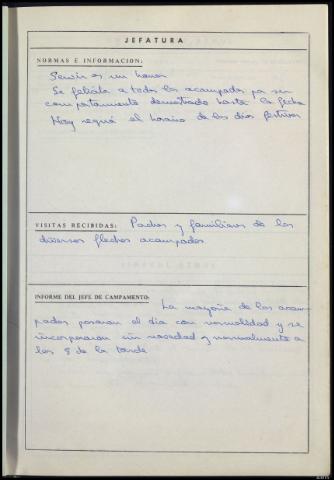 JEFATURA
NORMAS E INFORMACION:
Servir es un honor
Se felicita a todos los acampados por su
comportamiento demostrado hasta la fecha
Hoy regirá el horario de los días festivos
VISITAS RECIBIDAS: Padres y familiares de los
diversos flechas acampados
INFORME DEL JEFE DE CAMPAMENTO: La mayoría de los acam-
pados pasaron el día con normalidad y se
incorporaron sin novedad y normalmente a
las 8 de la tarde